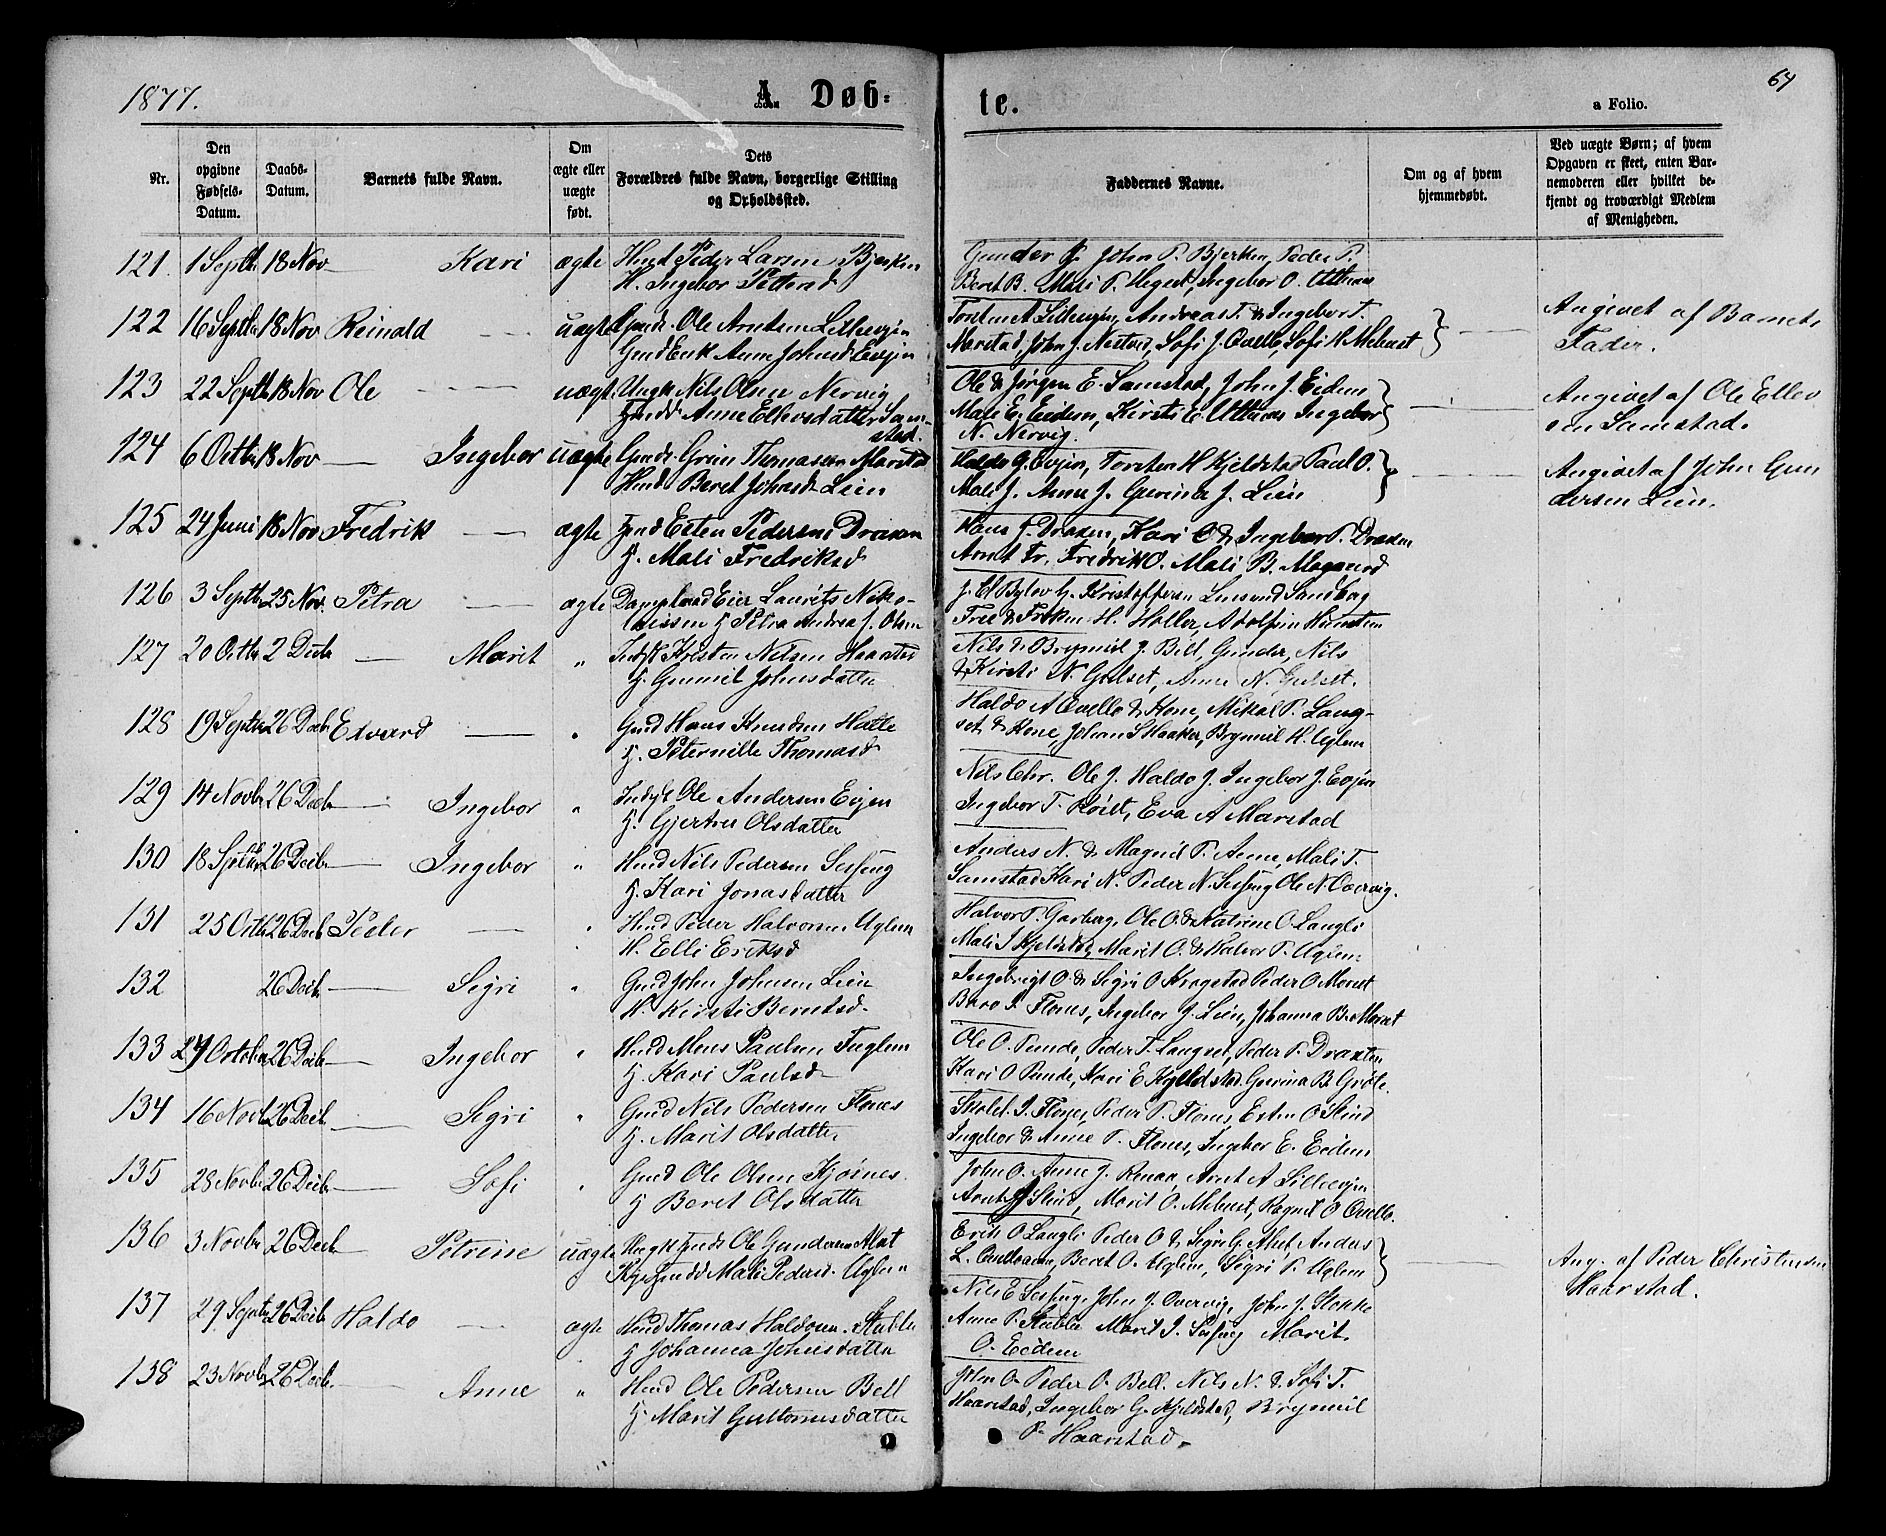 1877.
A. Døb-
te.
64
a Folio.
Nr.
Den opgivne Fødsels-Datum.
Daabs-Datum.
Barnets fulde Navn.
Om ægte eller uægte født.
Dets Forældres fulde Navn, borgerlige Stilling og Opholdssted.
Faddernes Navne.
Om og af hvem hjemmedøbt.
Ved uægte Børn; af hvem Opgaven er skeet, enten Barnemoderen eller hvilket bekjendt og troværdigt Medlem af Menigheden.
121. 1 Septb 18 Nov — Kari ægte Hmd Peder Larsen Bjerken
H. Ingebor Pettersd
Gunder P. John P. Bjerken, Peder P.
Beret B. Mali P. Hegset, Ingebor O. Uthuus
122 16 Septbr 18 Nov Reinald — uægte Gmds. Ole Arntsen Lillevjen
Gmd Enk Anne Johnsd Evjen
Torsten A Lillevjen, Andreas T. & Ingebor T.
Marstad, John J. Nestvd, Sofi J. Qvello, Sofi H Melhust
Angivet af Barnets
Fader.
123 22 Septb 18 Nov Ole — uægt. Ungk Nils Olsen Nervig
Gmdd Anne Ellevsdatter Sam-
stad.
Ole & Jørgen E. Samstad, John J. Eidem
Mali E. Eidem, Kirsti E. Uthuus Ingebor
N. Nervig.
Angivet af Ole Ellev
sen Samstad.
124 6 Octb 18 Nov — Ingebor uægte Gmds. Grim Thomasen Marstad
Hmd Beret Johnsd Lien
Haldo G. Evjen, Torsten H Kjeldstad Paul O.
Mali J. Anne J. Gurina J. Lien
Angivet af John Gun
dersen Lien.
125 24 Juni 18 Nov Fredrik — ægte Gmd Esten Pedersen Draxen
H. Mali Fredriksd
Hans J. Draxen, Kari O & Ingebor P. Draxen
Arnt Fr. Fredrik O. Mali B. Mogaard
126 3 Septb 25 Nov. Petra — ægte Dampbaad Eier Laurits Niko-
laissen H Petra Andrea J. Olsen
127 20 Octb 2 Decb — Marit „ Indst Kresten Nilsen Haarstad
H. Gunnil Johnsdatter
Nils & Brynnil J. Bell, Gunder, Nils
& Kirsti N. Gulset, Anne N. Gulset.
128 19 Septb 26 Decb Edvard — „ Gmd Hans Knudsen Halle
H. Peternille Thomasd
Haldo A Qvello & Kone, Mikal P. Lang-
set & Kone, Johan S Haaker, Brynnil H. Uglem
129 14 Novbr 26 Decb — Ingebor „ Indst Ole Andersen Evjen
H. Gjertru Olsdatter
Nils Chr. Ole J. Haldo J. Ingebor J. Evjen
Ingebor T. Røset, Eva A Marstad
130 18 Septbr 26 Decb — Ingebor „ Hmd Nils Pedersen Sesseng
H. Kari Jonasdatter
Anders N. & Magnil P. Anne, Mali T.
Samstad Kari N. Peder N. Sesseng Ole N. Overvig.
131 25 Octb 26 Decb Peder — „ Hmd Peder Halvorsen Uglem
H. Elli Eriksd
Halvor P. Garberg, Ole O. & Katrine O Langli
Mali J Kjeldstad, Marit O. & Halvor P. Uglem
132 26 Decb — Sigri „ Gmd John Johnsen Lien
H. Kirsti Berntsd.
Ingebrigt O. & Sigri O Kragstad Peder O Moret
Baro J. Flones, Ingebor J. Lien, Johanna B. Moret
133 27 Octobr 26 Decb — Ingebor „ Hmd Mons Paulsen Fuglem
H. Kari Paulsd
Ole O. Rende, Peder T. Langset, Peder P. Draxten
Kari O Rende, Kari E Kjeldstad. Gurina B. Grøte.
134 16 Novb 26 Decb. — Sigri „ Gmd Nils Pedersen Flones
H. Marit Olsdatter
Skolel. J. Flones, Peder P. Flones, Esten O Slind
Ingebor & Anne P. Flones, Ingebor E. Eidem
135 28 Novb 26 Decb — Sofi „ Gmd Ole Olsen Kjøsnes
H Beret Olsdatter
John O. Anne J. Renaa, Arnt A Lillevjen
Arnt J Slind, Marit O. Melhust, Ragnil O Qvello.
136 3 Novbr 26 Decb — Petrine uægte Ungk Gmds Ole Gundersen Alset
Pige Gmdd Mali Pedersd. Uglem
Erik O Langli Peder O & Sigri G. Alset, Anders
L. Qvelloaune, Beret O. Uglem, Sigri P. Uglem
Ang. af Peder Christensen
Haarstad.
137 29 Septb 26 Decb Haldo — ægte Hmd Thomas Haldosen Stubbe
H Johanna Johnsdatter
Nils E Sesseng, John J. Overvig, John J. Stokke
Anne P. Stubbe Marit J. Sesseng Marit
O. Eidem
138 23 Novb 26 Decb. — Anne „ Hmd Ole Pedersen Bell
H. Marit Guttormsdatter
John O. Peder O. Bell. Nils N. & Sofi T.
Haarstad, Ingebor G. Kjeldstad, Brynnil
P. Haarstad.